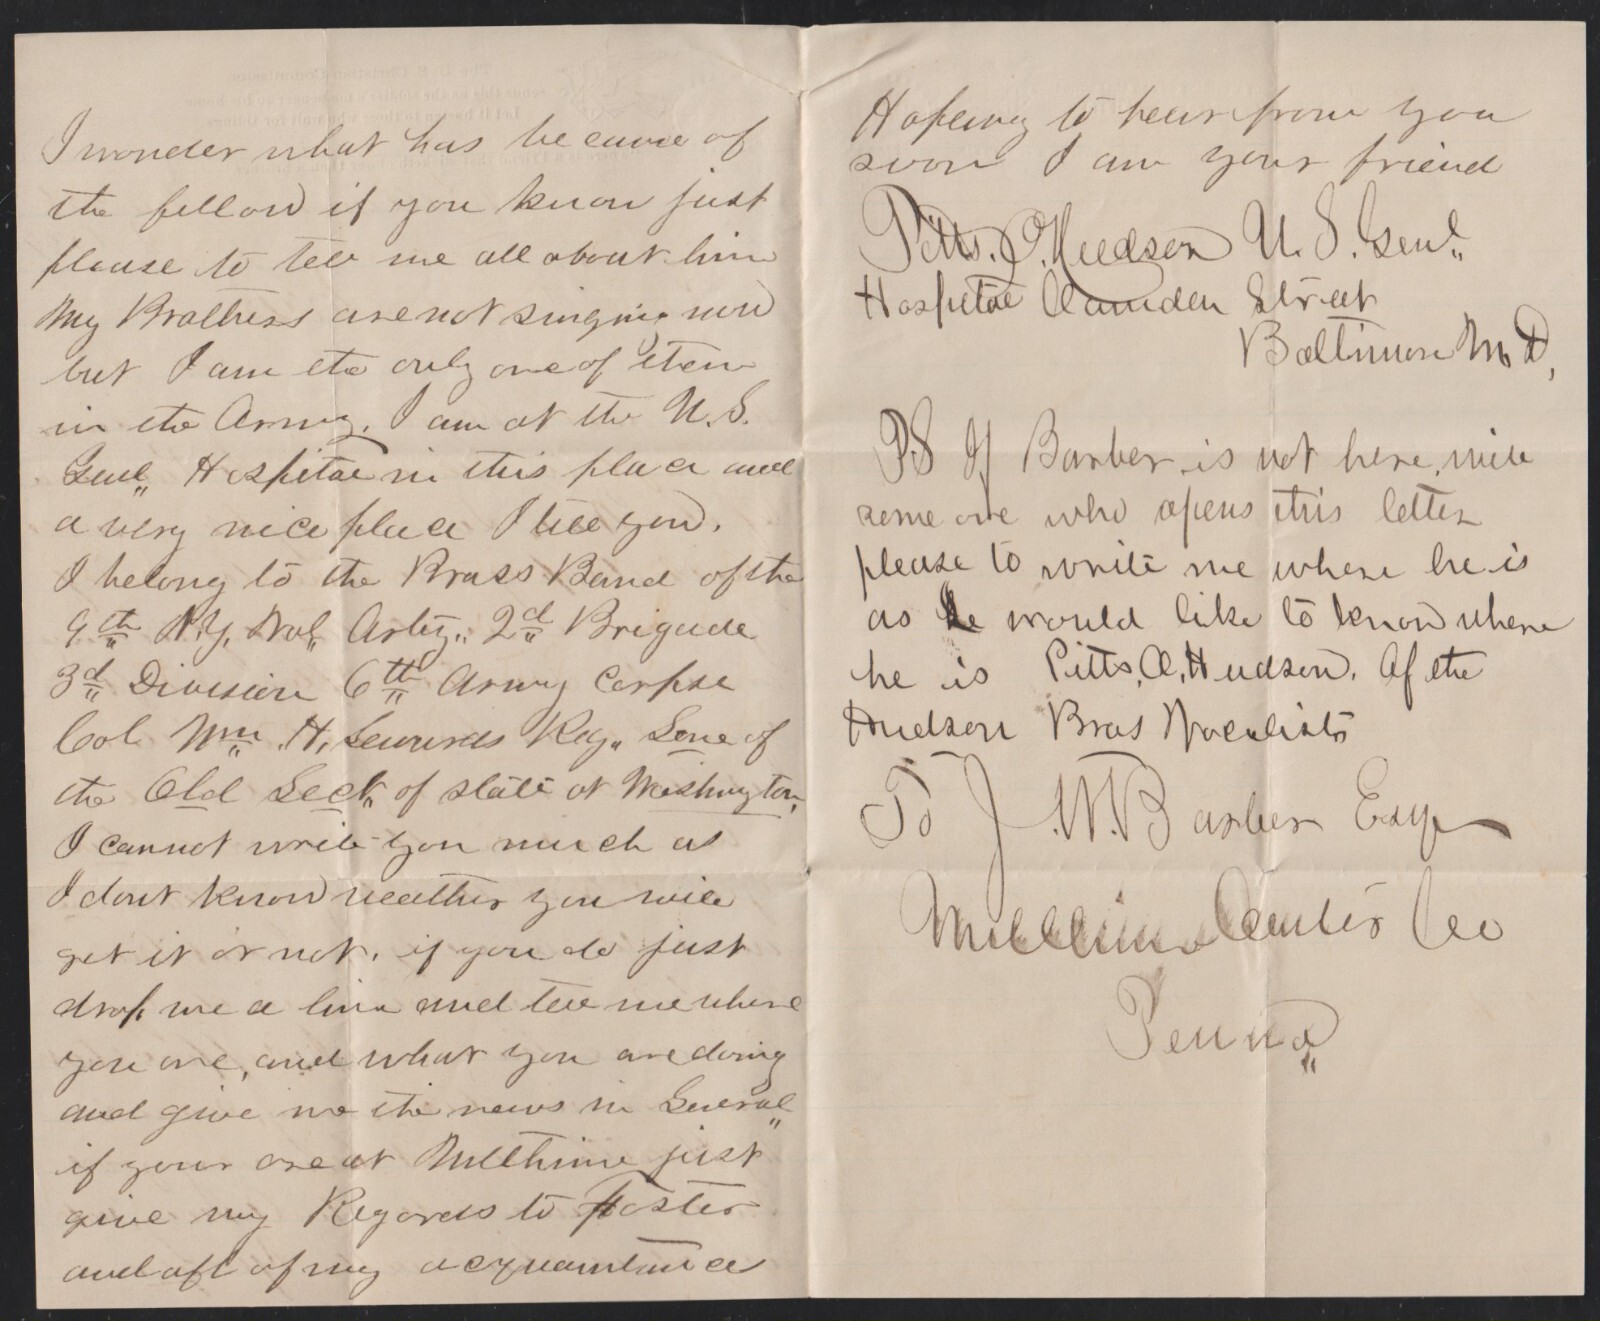 I wonder what has became of
the fellow if you know just
please to tell me all about him
My Brothers are not singing now
but I am the only one of them
in the Army. I am at the U.S.
Genl" Hospital in this place and
a very nice place I tell you.
I belong to the Brass Band of the
9th N.Y. Vol" Arty" 2d" Brigade
3d" Division 6th" Army Corpse
Col. Wm" H. Sewards Reg" Sone of
the Old Sect" of state at Washington,
I cannot write you much as
I dont know weather you will
get it or not, if you do just
drop me a line and tell me where
you are, and what you are doing
and give me the news in General"
if your are at just
give my Regards to Foster
and all of my acquaintance
Hopeing to hear from you
soon I am your friend
Pitts. O. Hudson U.S. Genl"
Hospital Camden Street
Baltimore M.D,
P.S If Barber is not here, will
some one who opens this letter
please to write me where he is
as I would like to know where
he is Pitts, O, Hudson. Of the
Hudson Bros Vocalists
To J. W. Barber Esqr
Center Co
Penna"